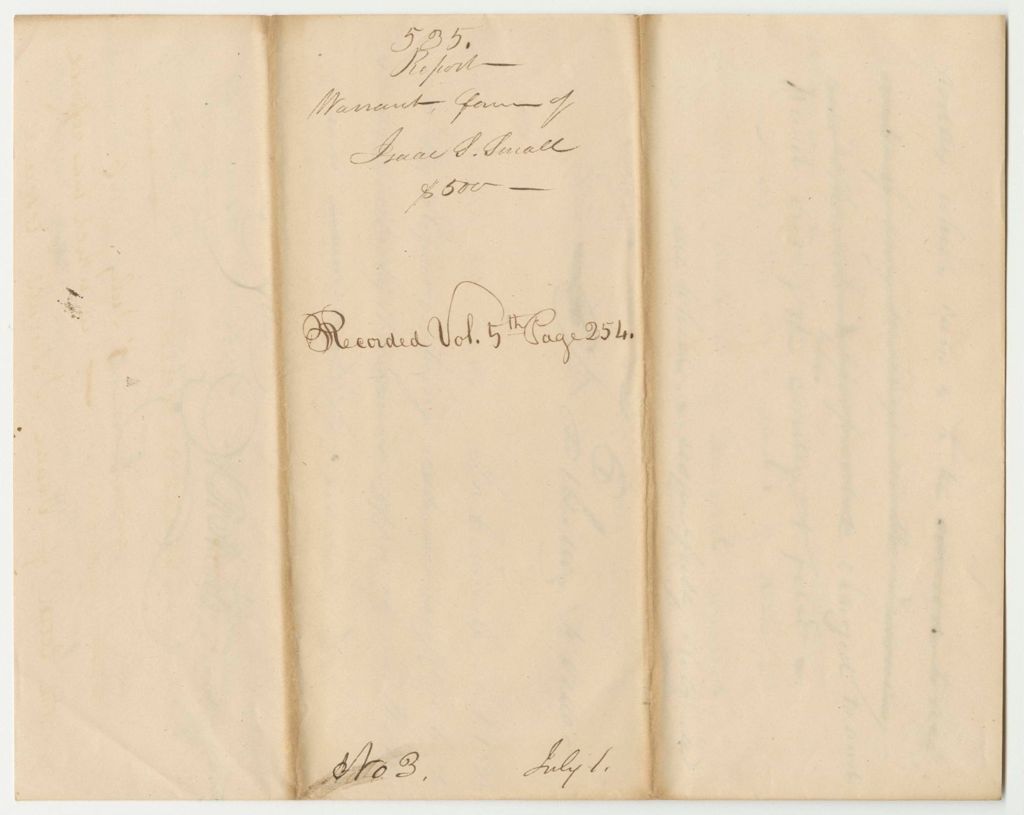 535.
Report
Warrant, favr of
Isaac S. Small
$500
Recorded Vol. 5th Page 254.
No 3. July 1.